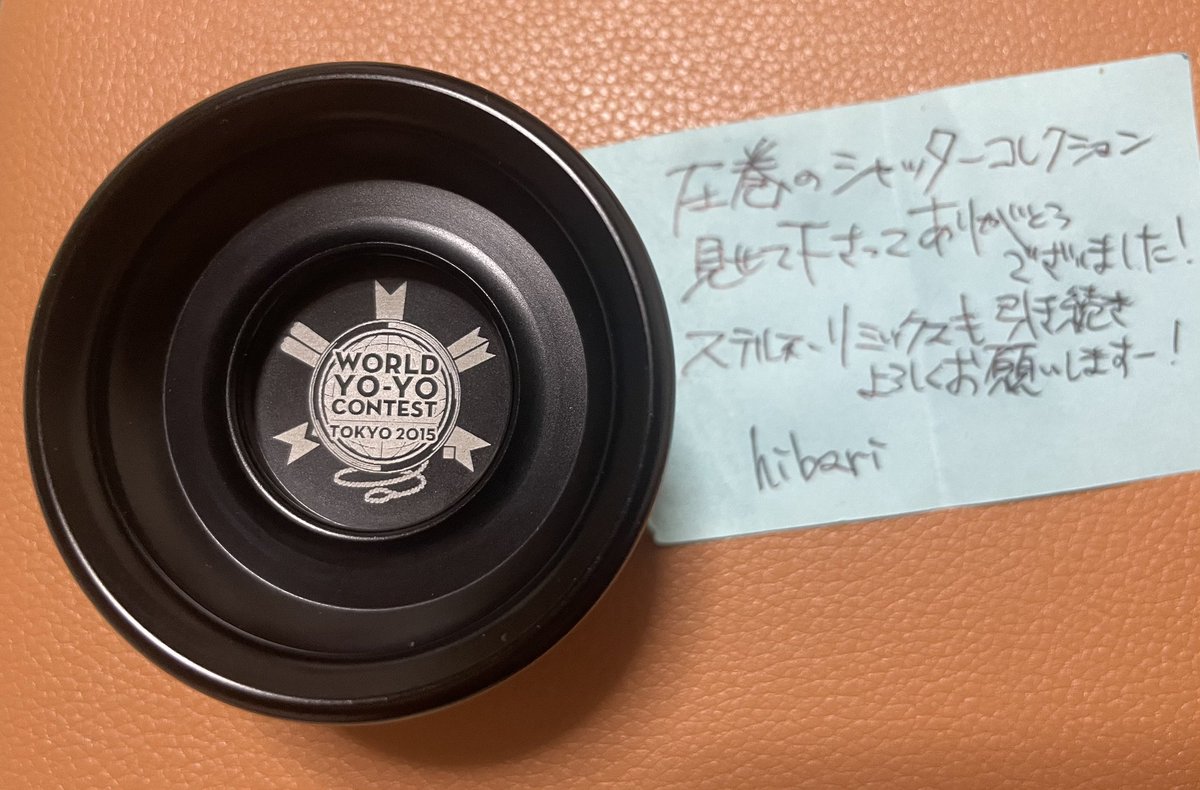 WORLD
YO-YO
CONTEST
TOKYO 2015
圧巻のシャッターコレクション
見せて下さってありがとう
ございました!
ステルス・リミックスも引き続き
よろしくお願いしますー!
hibari